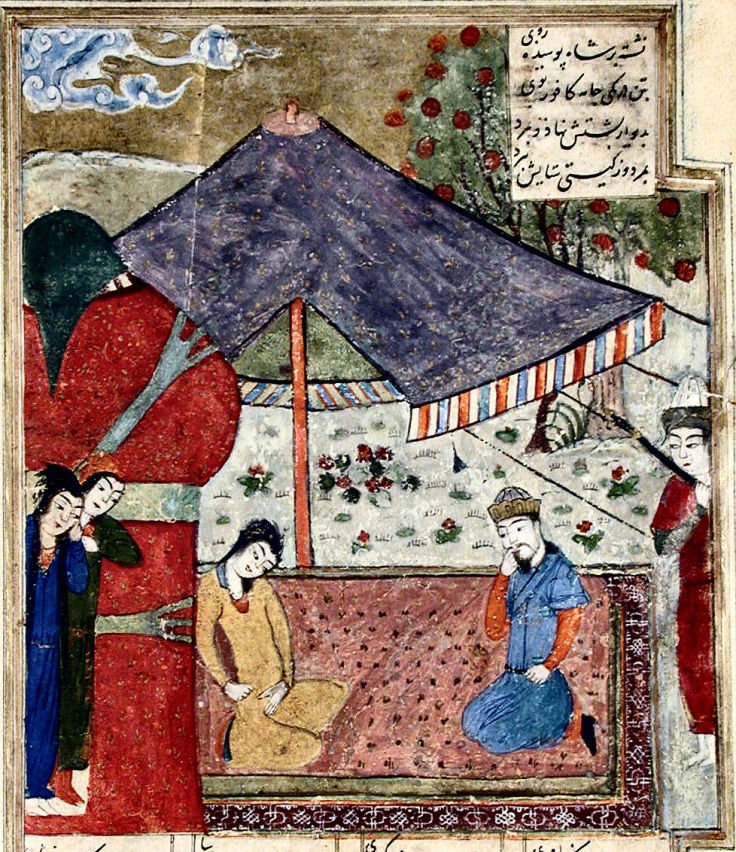 نشسته بر شاه پوشیده روی
بتن در یکی جامه کافور بوی
بدیوار پشتش نهاد و بمرد
بمرد و ز گیتی ستایش ببرد